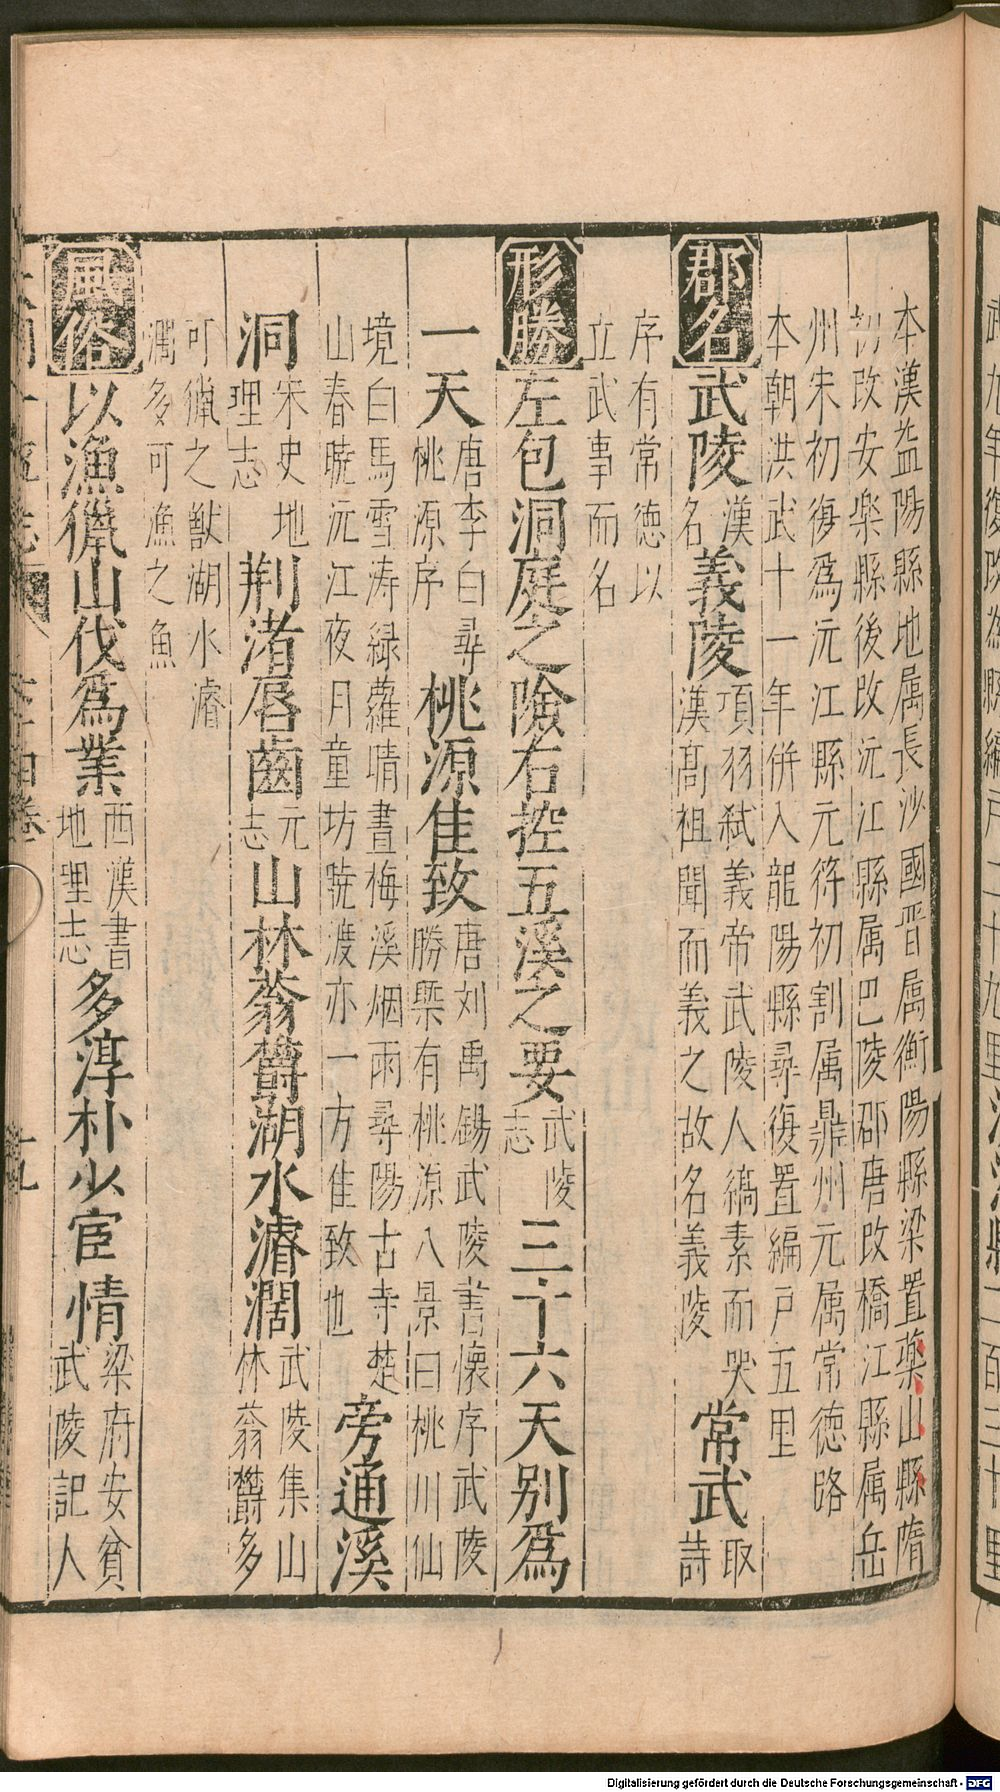 本漢益陽縣地属長沙國晋属衡陽縣梁置藥山縣隋
初改安樂縣後改沅江縣属巴陵郡唐改橋江縣属岳
州宋初復爲沅江縣元符初割属鼎州元属常徳路
本朝洪武十一年併入龍陽縣尋復置編戸五里
郡名 武陵 漢名 義陵 項羽弑義帝武陵人縞素而哭漢髙祖聞而義之故名義陵 常武 取詩
序有常徳以立武事而名
形勝 左包洞庭之險右控五溪之要 武陵志 三十六天别爲
一天 唐李白尋桃源序 桃源佳致 唐刘禹鍚武陵書懷序武陵勝槩有桃源八景曰桃川仙
境白馬雪涛緑蘿晴晝梅溪烟雨尋陽古寺楚山春暁沅江夜月童坊暁渡亦一方佳致也 旁通溪
洞 宋史地理志 荆渚唇齒 元志 山林蓊欝湖水濬濶 武陵集山林蓊欝多
可獵之獸湖水濬濶多可漁之魚
風俗 以漁獵山伐爲業 西漢書地理志 多淳朴少宦情 梁府安貧武陵記人
十九
Digitalisierung gefördert durch die Deutsche Forschungsgemeinschaft - DFG